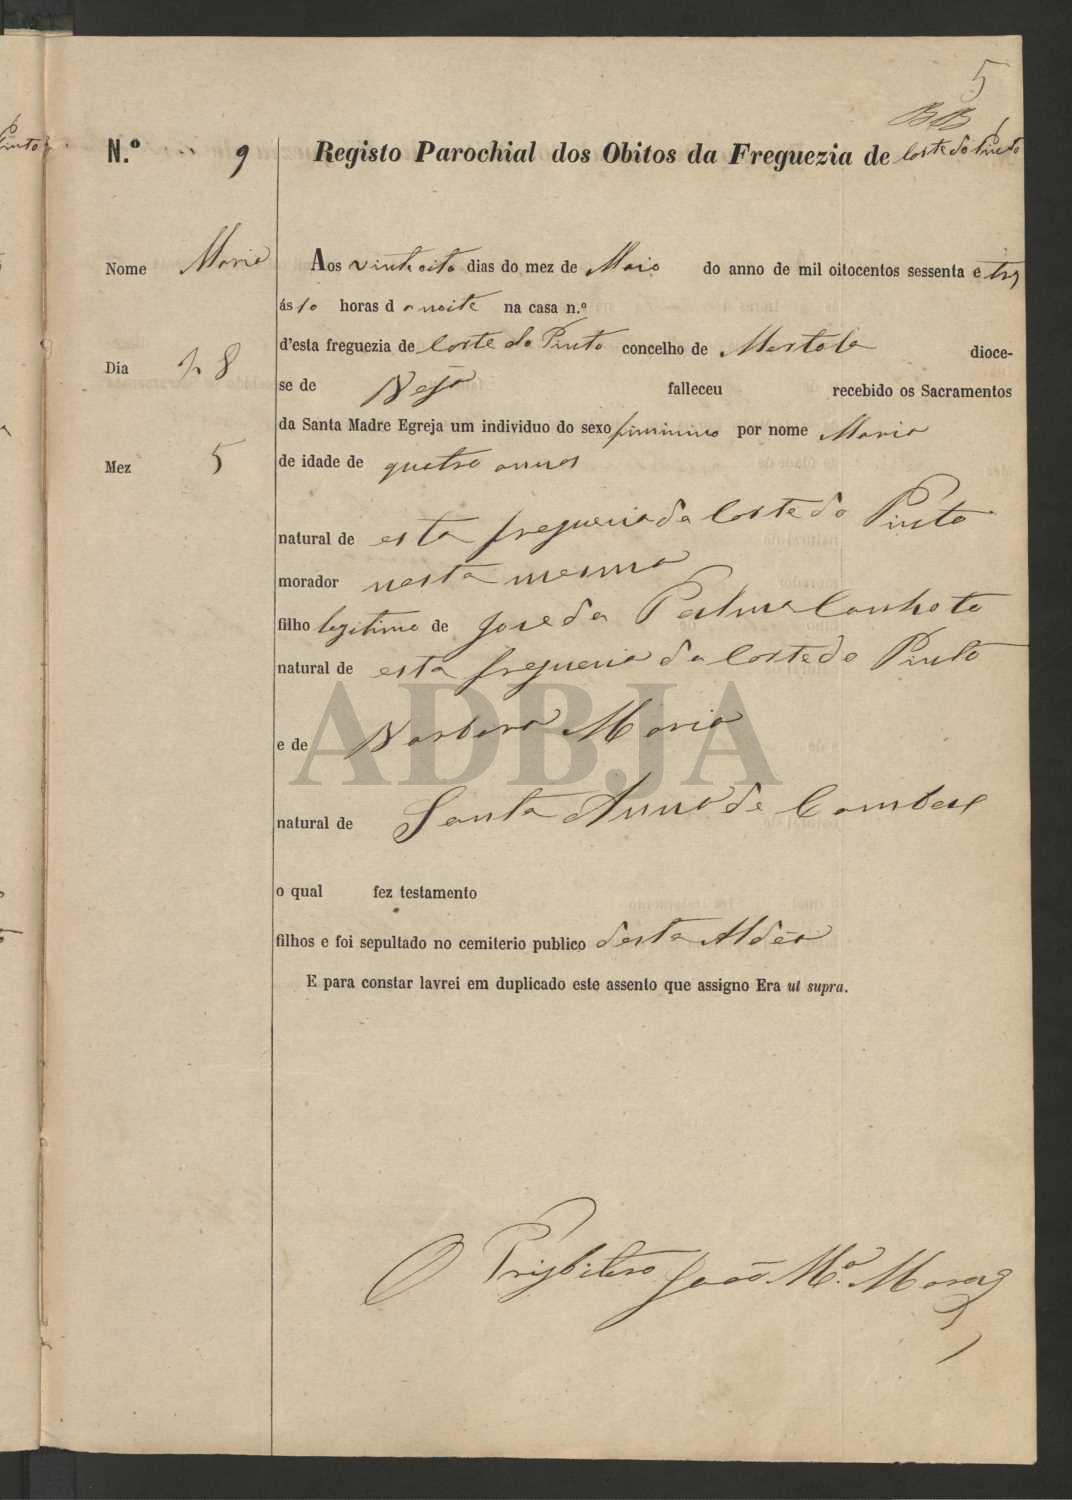 5
BB
N.º 9 Registo Parochial dos Obitos da Freguezia de Corte do Pinto
Nome Maria
Aos vinteoito dias do mez de Maio do anno de mil oitocentos sessenta e tres
ás 10 horas d a noite na casa n.º
d'esta freguezia de Corte do Pinto concelho de Mertola dioce-
Dia 28
se de Beja falleceu recebido os Sacramentos
da Santa Madre Egreja um individuo do sexo feminino por nome Maria
Mez 5
de idade de quatro annos
natural de esta freguezia da Corte do Pinto
morador nesta mesma
filho legitimo de Jose da Palma Canhoto
natural de esta freguezia da Corte do Pinto
e de Barbara Maria
natural de Santa Anna de Cambas
o qual fez testamento
filhos e foi sepultado no cemiterio publico desta Aldea
E para constar lavrei em duplicado este assento que assigno Era ut supra.
O Presbitero João M.ª
ADBJA